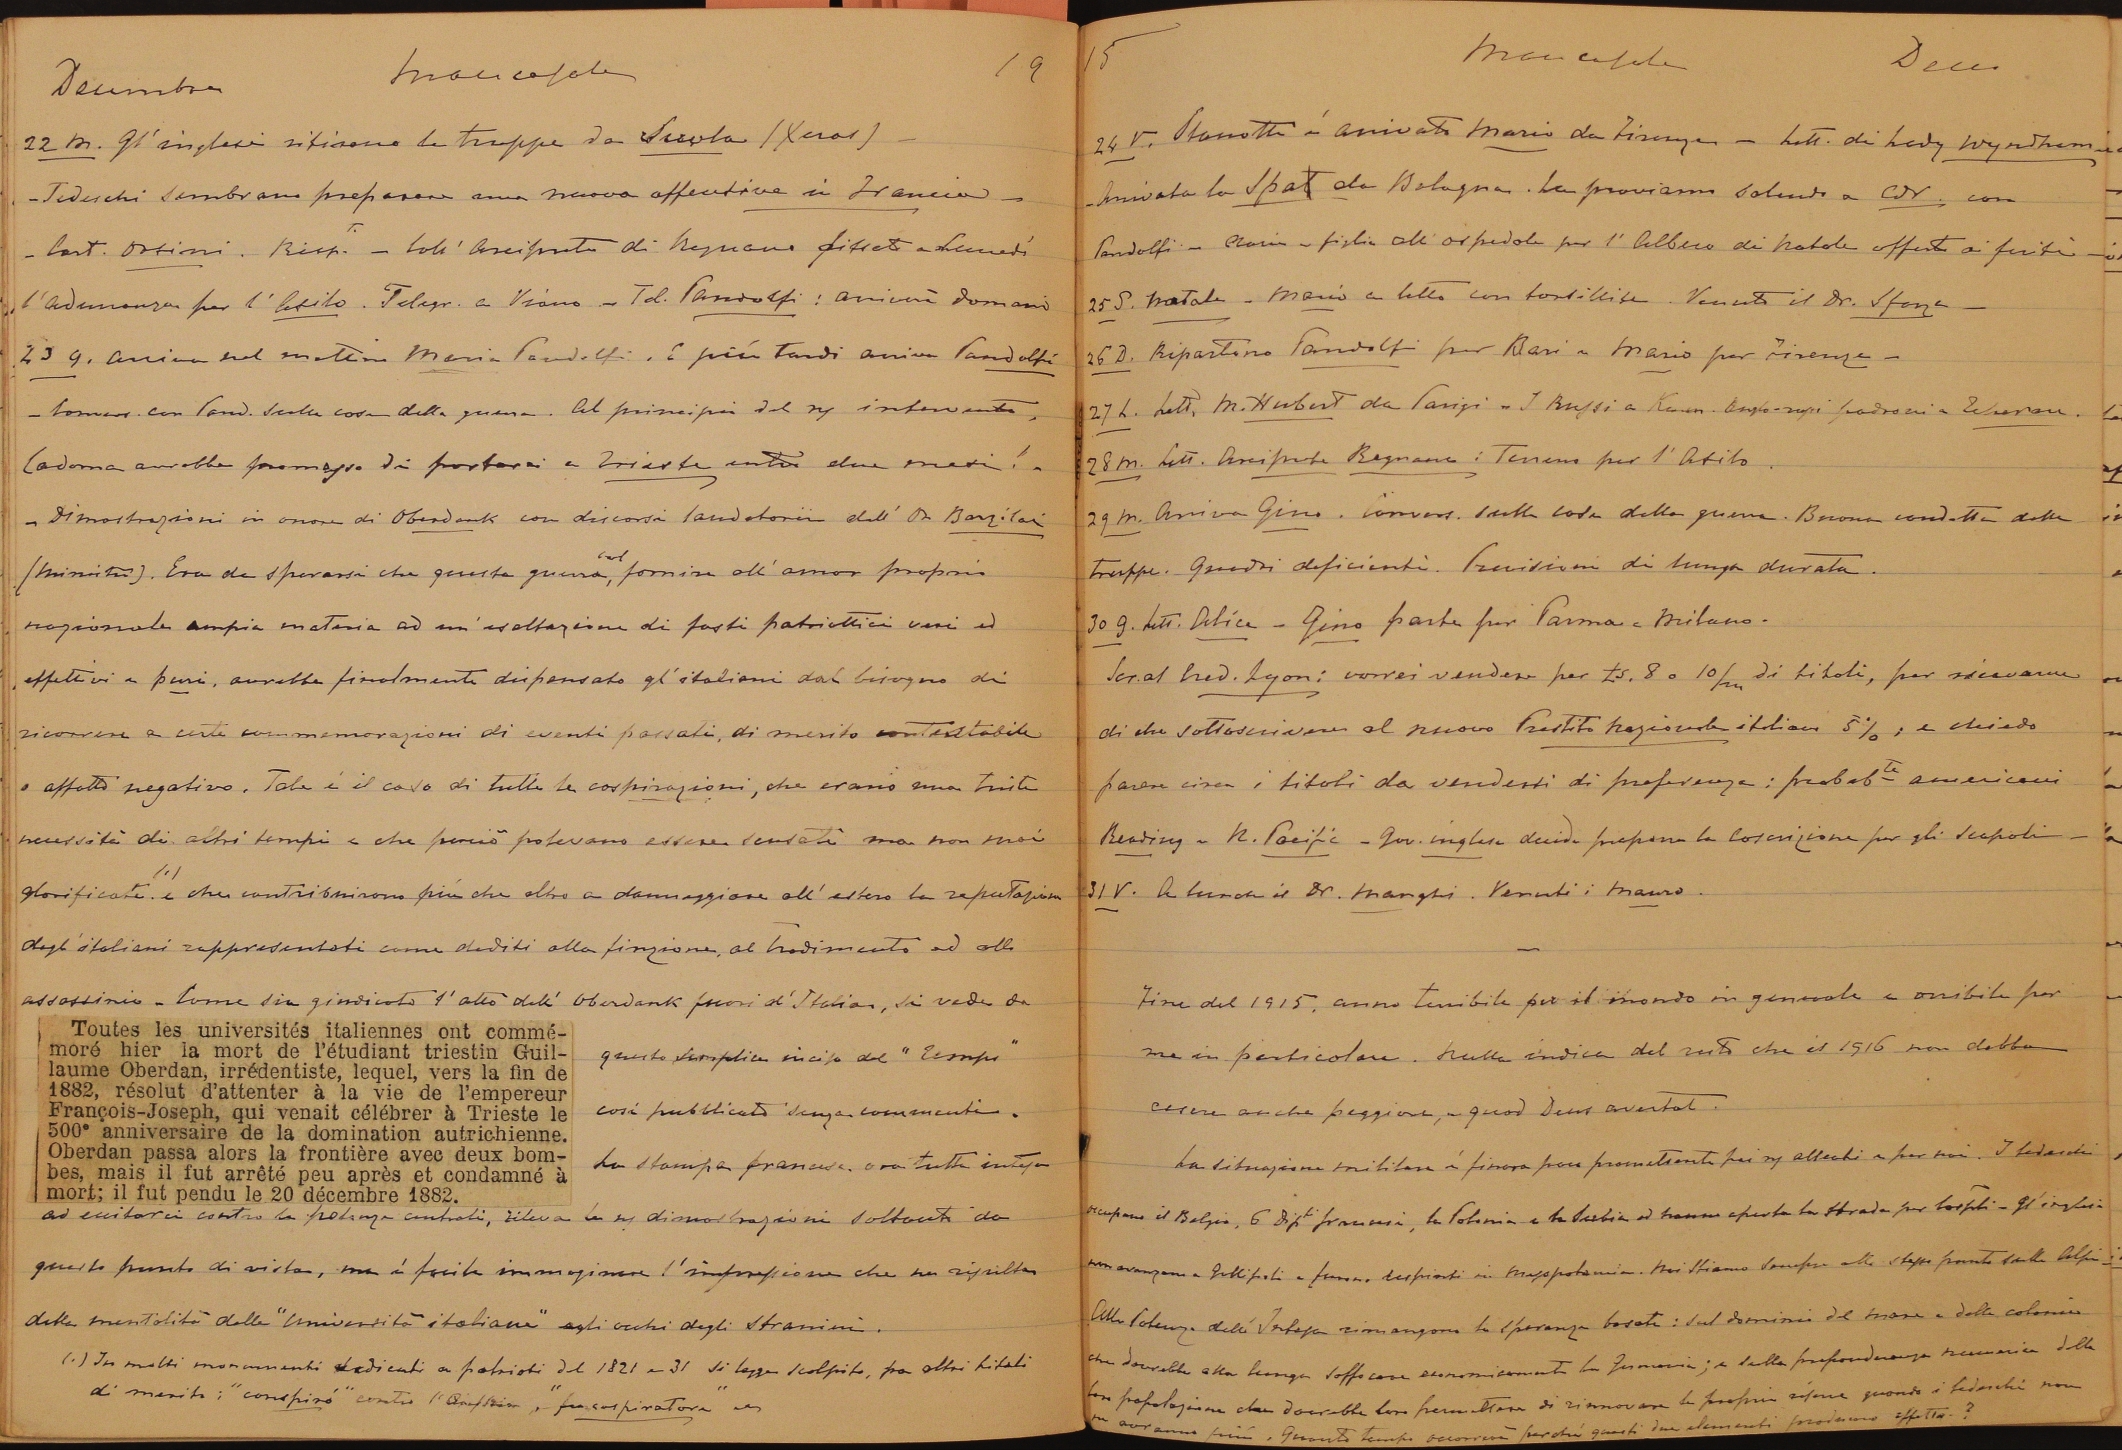 Decembre Mancasale 19
22 M. Gl'inglesi ritirano le truppe da Suvla (Xeros) –
- Tedeschi sembrano preparare una nuova offensiva in Francia –
- Cart. Orsini. Risp. – Coll'Arciprete di Regnano fissato a Lunedì
l'adunanza per l'Asilo. Telegr. a Viano – Tel. Pandolfi: arriverà domani
23 G. Arriva nel mattino Maria Pandolfi. E più tardi arriva Pandolfi
- Convers. con Pand. sulle cose della guerra. Al principio del ns intervento,
Cadorna avrebbe promesso di portarci a Trieste entro due mesi! –
- Dimostrazioni in onore di Oberdank con discorsi laudatorii dell'On Barzilai
(Ministro). Era da sperarsi che questa guerra, col fornire all'amor proprio
nazionale ampia materia ad un'esaltazione di fasti patriottici veri ed
effettivi e puri, avrebbe finalmente dispensato gl'italiani dal bisogno di
ricorrere a certe commemorazioni di eventi passati, di merito contestabile
o affatto negativo. Tale è il caso di tutte le cospirazioni, che erano una triste
necessità di altri tempi e che perciò potevano essere scusate ma non mai
glorificate (.) e che contribuirono più che altro a danneggiare all'estero la reputazione
degl'italiani rappresentati come dediti alla finzione, al tradimento ed allo
assassinio – Come sia giudicato l'atto dell'Oberdank fuori d'Italia, si vede da
Toutes les universités italiennes ont commé-
moré hier la mort de l'étudiant triestin Guil-
laume Oberdan, irrédentiste, lequel, vers la fin de
1882, résolut d'attenter à la vie de l'empereur
François-Joseph, qui venait célébrer à Trieste le
500e anniversaire de la domination autrichienne.
Oberdan passa alors la frontière avec deux bom-
bes, mais il fut arrêté peu après et condamné à
mort; il fut pendu le 20 décembre 1882.
questo semplice inciso del "Temps"
così pubblicato senza commenti.
La stampa francese ora tutta intesa
ad eccitarci contro le potenze centrali, rileva le ns dimostrazioni soltanto da
questo punto di vista, ma è facile immaginare l'impressione che ne risulta
della mentalità delle "Università italiane" agli occhi degli stranieri.
(.) In molti monumenti dedicati a patrioti del 1821 e 31 si legge scolpito, fra altri titoli
di merito: "conspirò" contro l'Austria, "fu cospiratore"
15 Mancasale Dece
24 V. Stanotte è arrivato Mario da Firenze – Lett. di Lady Wyndham
- Arrivata la Spat da Bologna. La proviamo salendo a CDR. con
Pandolfi – Maria e figlia all'ospedale per l'Albero di Natale offerto ai feriti –
25 S. Natale – Mario a letto con tonsillite. Venuto il Dr. Sforza –
26 D. Ripartono Pandolfi per Bari e Mario per Firenze –
27 L. Lett. M. Herbert da Parigi – I Russi a Kum. Anglo-russi padroni a Teheran.
28 M. Lett. Arciprete Regnano: Terreno per l'Asilo.
29 M. Arriva Gino. Convers. sulle cose della guerra. Buona condotta delle
truppe. Quadri deficienti. Previsioni di lunga durata.
30 G. Lett. Alice – Gino parte per Parma e Milano.
Scr. al Cred. Lyon: vorrei vendere per Ls. 8 o 10/m di titoli, per ricavarne
di che sottoscrivere al nuovo Prestito Nazionale italiano 5%; e chiedo
parere circa i titoli da vendersi di preferenza: probabte americani
Reading e N. Pacific – Gov. inglese decide proporre la Coscrizione per gli scapoli –
31 V. A lunch il Dr. Manghi. Venuti i Mauro.
Fine del 1915, anno terribile per il mondo in generale e orribile per
me in particolare. Nulla indica del resto che il 1916 non debba
essere anche peggiore, quod Deus avertat.
La situazione militare è finora poco promettente pei ns alleati e per noi. I tedeschi
occupano il Belgio, 6 Dipti francesi, la Polonia e la Serbia ed hanno aperta la strada per Costpli – Gl'inglesi
non avanzano a Gallipoli e furono respinti in Mesopotamia. Noi stiamo sempre allo stesso punto sulle Alpi –
Alle Potenze dell'Intesa rimangono le speranze basate: sul dominio del mare e delle colonie
che dovrebbe alla lunga soffocare economicamente la Germania; e sulla preponderanza numerica della
loro popolazione che dovrebbe loro permettere di rinnovare le proprie risorse quando i tedeschi non
ne avranno più. Quanto tempo occorrerà perché questi due elementi producano effetto?